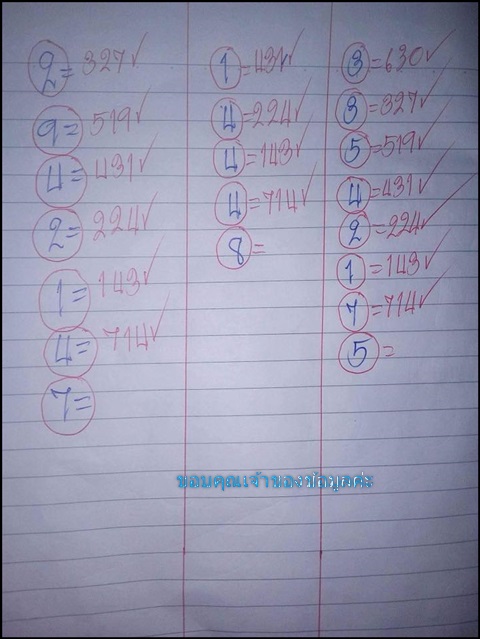 2 = 327✓
9 = 519✓
4 = 431✓
2 = 224✓
1 = 143✓
4 = 714✓
7 =
1 = 431✓
4 = 224✓
4 = 143✓
4 = 714✓
8 =
3 = 630✓
3 = 327✓
5 = 519✓
4 = 431✓
2 = 224✓
1 = 143✓
7 = 714✓
5 =
ขอบคุณเจ้าของข้อมูลค่ะ